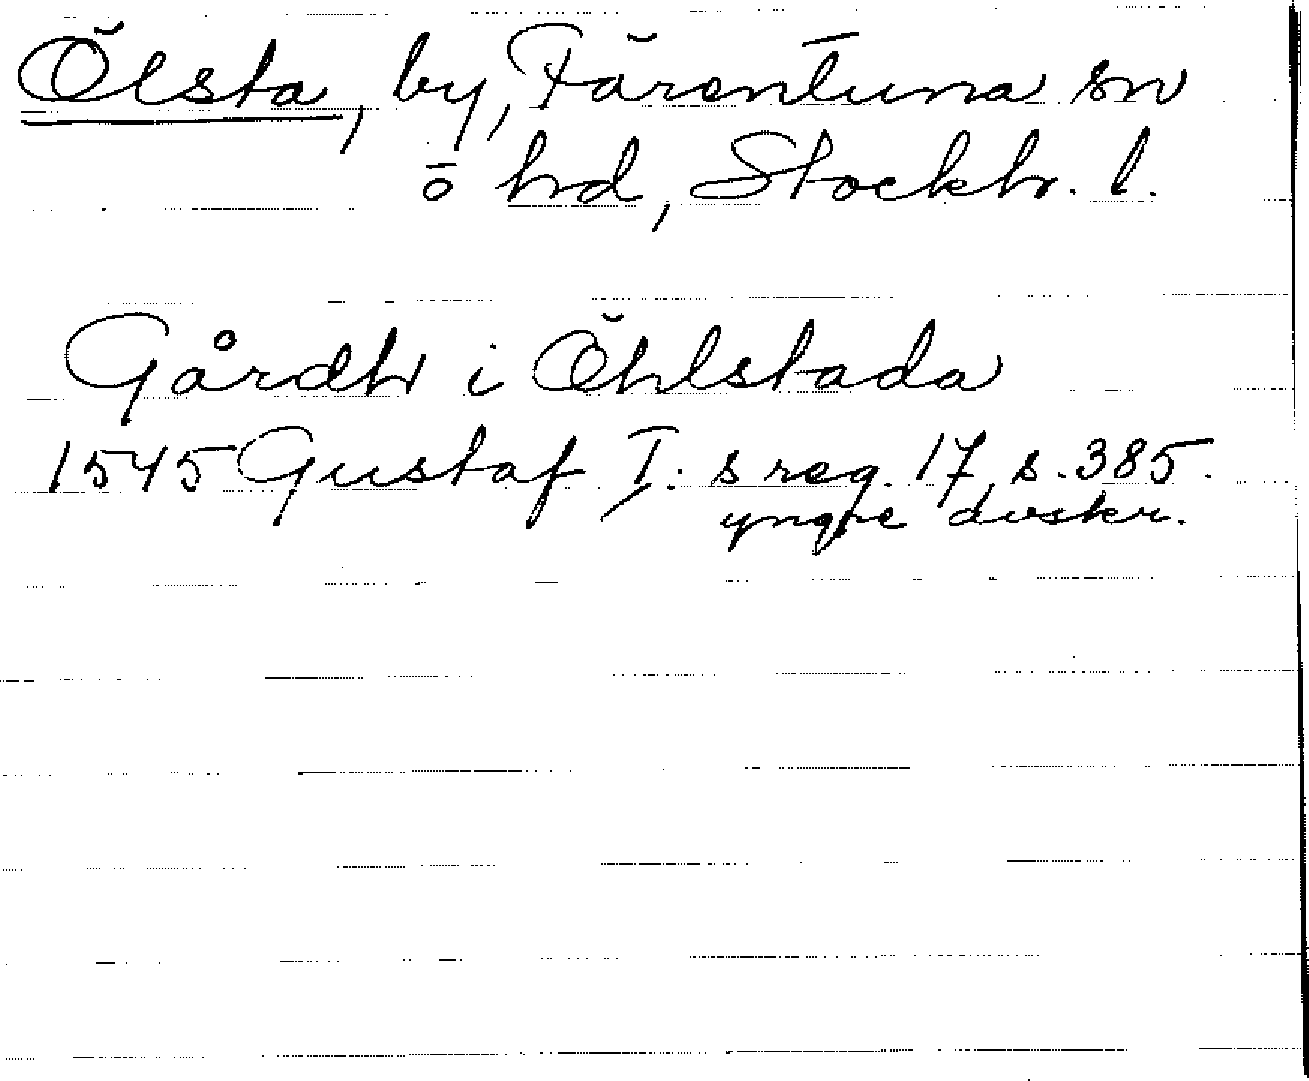 Ölsta, by, Färentuna sn
ö hd, Stockh. l.
Gårdh i Öhlstada
1545 Gustaf I: s reg. 17, s. 385.
yngre avskr.